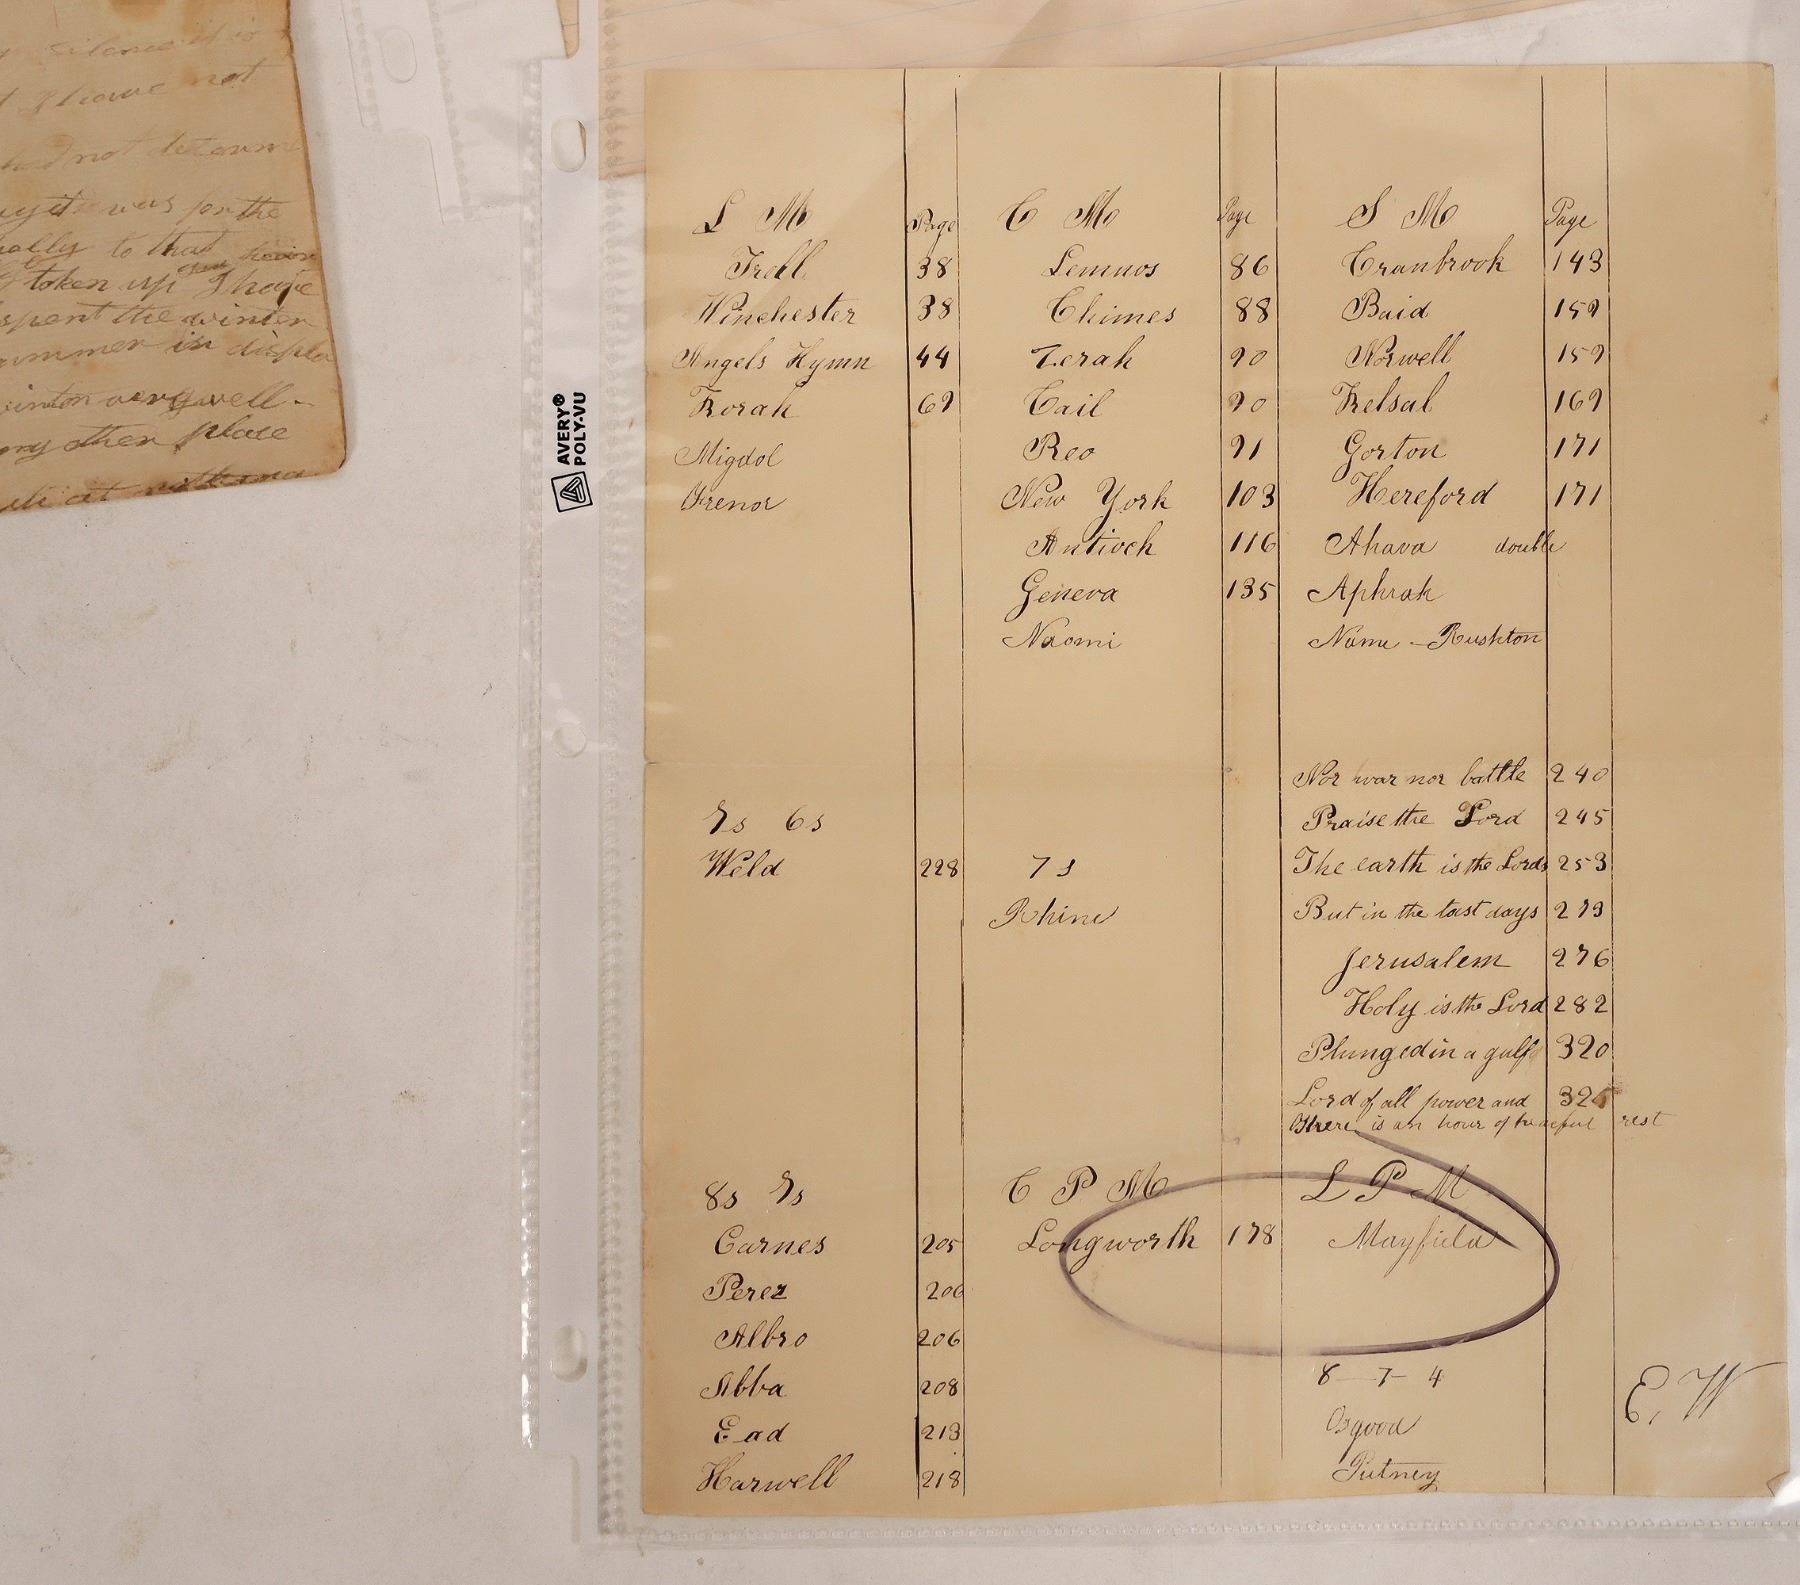 silence it is
I leave not
had not determ
was for the
to that
taken up I have
spent the winter
summer in displa
winton very well.
any other place
AVERY®
POLY-VU
L M Page C M Page S M Page
38 Lemnos 86 Cranbrook 143
Winchester 38 Chimes 88 Baid 159
Angels Hymn 44 Zerah 90 Norwell 159
69 Cail 90 Kelsal 169
Migdol Reo 91 Gorton 171
New York 103 Hereford 171
Antioch 116 Ahava double
Geneva 135 Aphrah
Naomi Name - Rushton
Nor war nor battle 240
7s 6s Praise the Lord 245
Weld 228 7s The earth is the Lords 253
Rhine But in the last days 273
Jerusalem 276
Holy is the Lord 282
Plunged in a gulf 320
Lord of all power and
There is an hour of peaceful rest
8s 7s C P M L P M
Carnes 205 Longworth 178 Mayfield
Perez 206
Albro 206
Abba 208 8 - 7 - 4
Ead 213 Osgood
Harwell 218 Putney
E. W